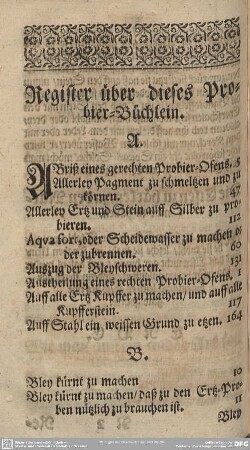 Register über dieses Pro-
bier-Büchlein.
A.
ABriß eines gerechten Probier-Ofens.
Allerley Pagment zu schmeltzen und zu
körnen. 47
Allerley Ertz und Stein auff Silber zu pro-
bieren. 112
Aqva fort, oder Scheidewasser zu machen
der zubrennen. 60
Auszug der Bleyschweren. 131
Austheilung eines rechten Probier-Ofens.
Auff alle Ertz Kupffer zu machen/ und auff alle
Kupfferstein. 117
Auff Stahl ein weissen Grund zu etzen. 164
B.
Bley kürnt zu machen 10
Bley kürnt zu machen/ daß zu den Ertz-Pro-
ben nützlich zu brauchen ist. 11
Bley